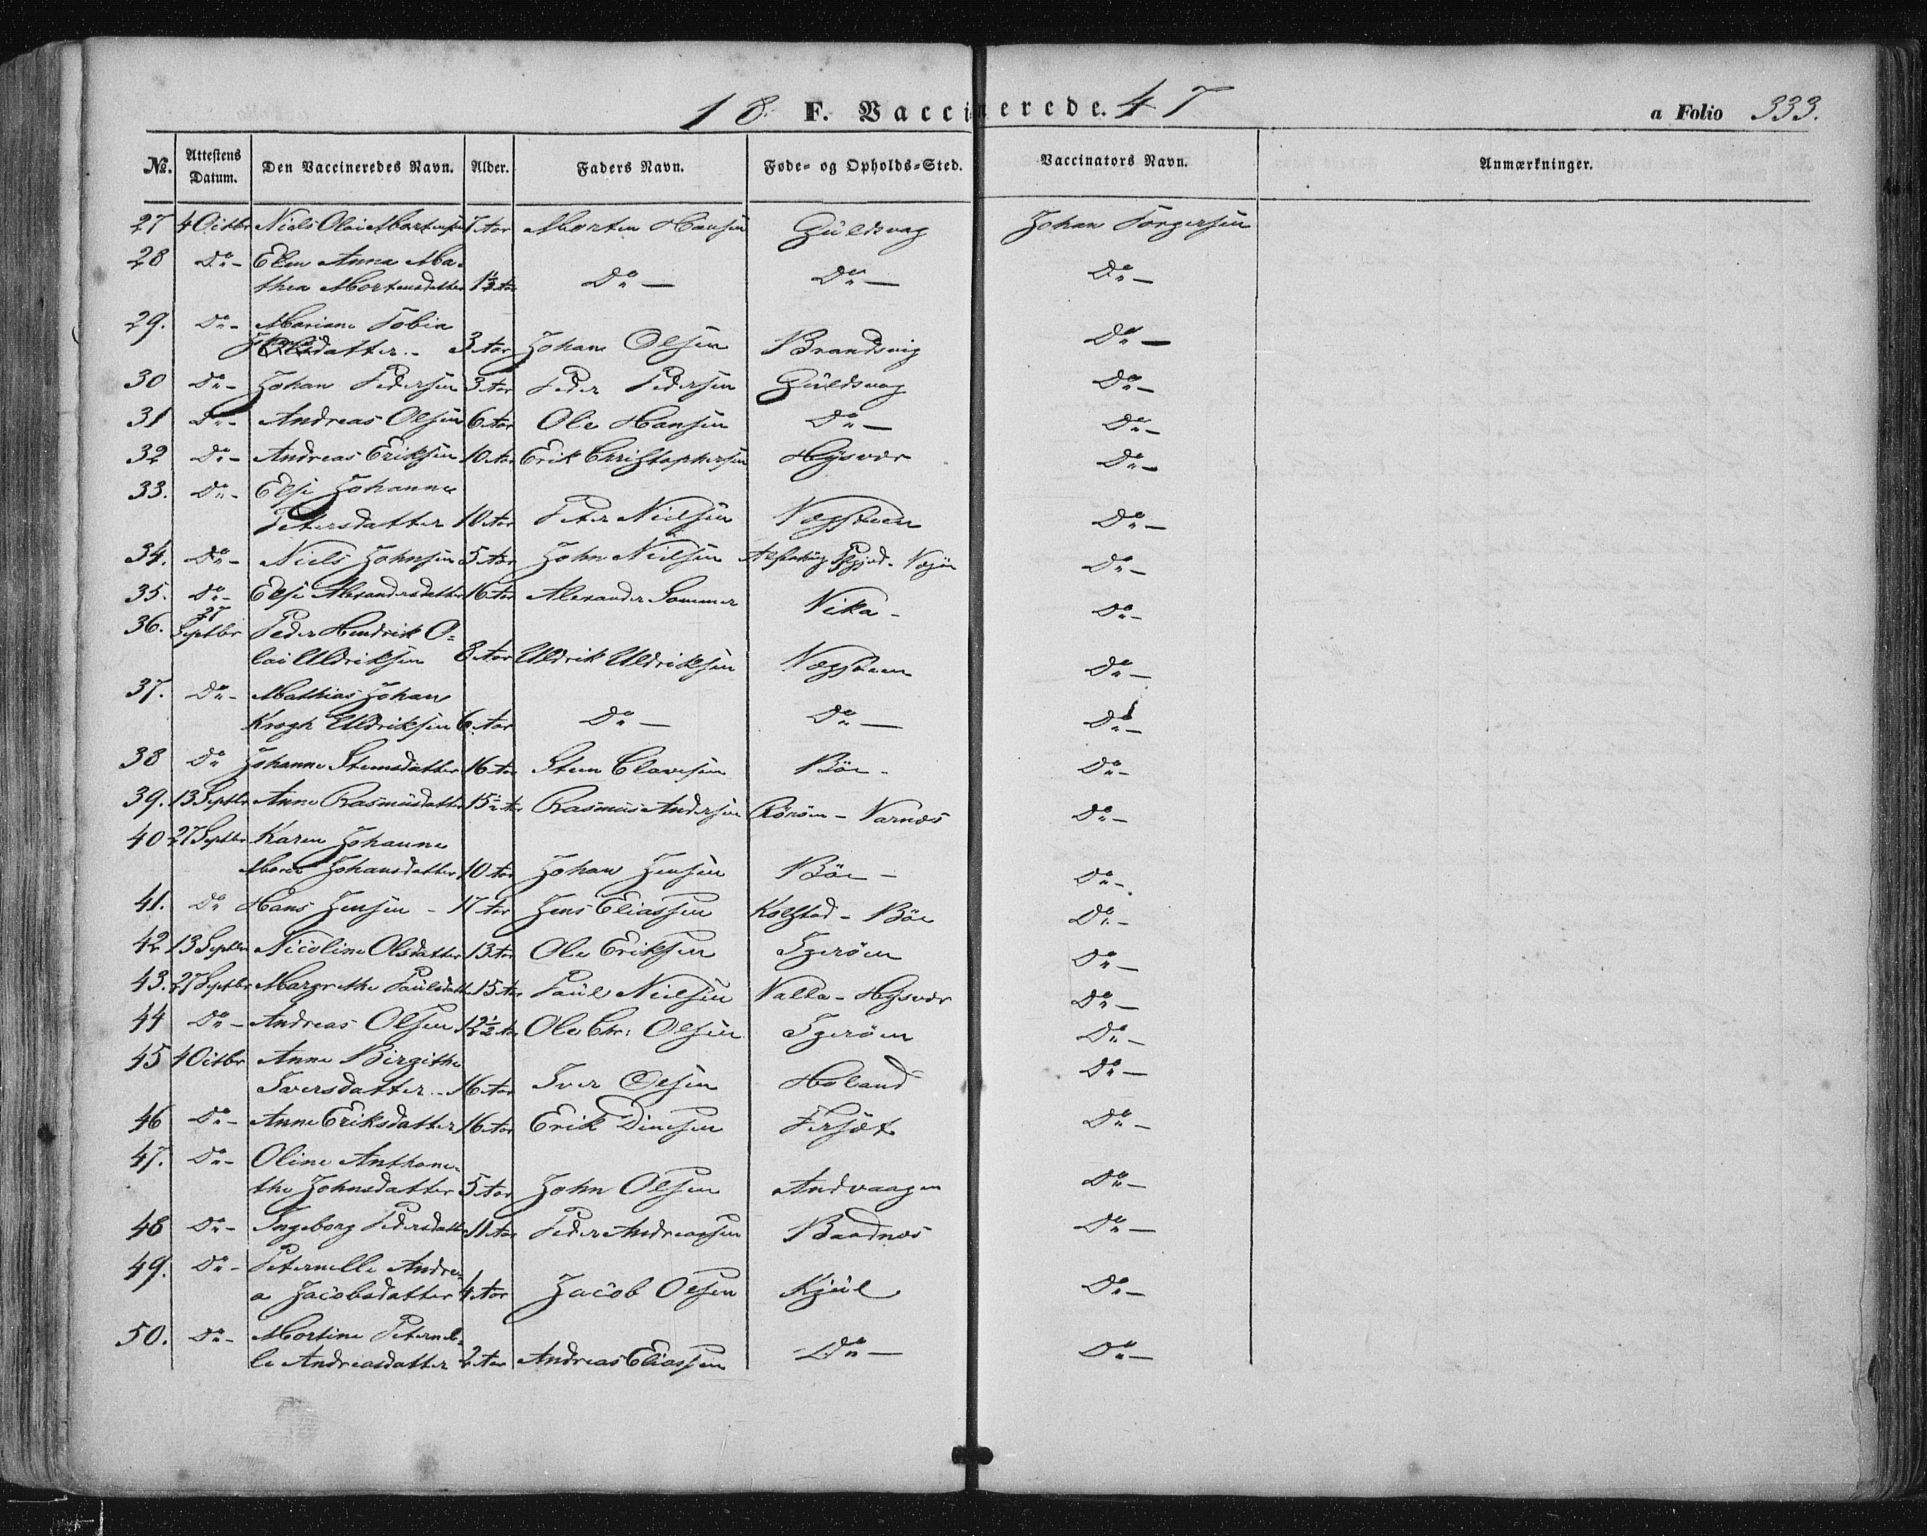 18 F. Vaccinerede. 47 a Folio 333.
No. Attestens Datum. Den Vaccineredes Navn. Alder. Faders Navn. Føde- og Opholds-Sted. Vaccinators Navn. Anmærkninger.
27 4 Octbr Niels Olai Mortensen 7 Aar Morten Hansen Güldsvag Johan Torgersen
28 Do - Elen Anna Ma-
thea Mortensdatter 1½ Aar Do - Do - Do -
29. Do - Mariane Tobia
datter - 3 Aar Johan Olsen Brandsvig Do -
30 Do - Johan Pedersen 3 Aar Peder Pedersen Güldsvag Do -
31 Do - Andreas Olsen 6 Aar Ole Hansen Do - Do -
32 Do - Andreas Eriksen 10 Aar Erik Christophersen Hysvær Do -
33. Do - Else Johanne
Petersdatter 10 Aar Peter Nielsen Do -
34. Do - Niels Johnsen 5 Aar John Nielsen Do -
35. Do - Else Alexandersdatter 16 Aar Alexander Sommer Vika - Do -
36. 27 Septbr Peder Hendrik O-
lai Uldriksen 8 Aar Uldrik Uldriksen Do -
37. Do - Mathias Johan
Krogh Uldriksen 6 Aar Do - Do - Do -
38 Do Johanne Steensdatter 16 Aar Steen Clavesen Böe - Do -
39. 13 Septbr Anne Rasmusdatter 15½ Aar Rasmus Andersen Rönöen - Varnæs Do -
40 27 Septbr Karen Johanne
Maria Johansdatter 10 Aar Johan Jensen Böe - Do -
41. Do Hans Jensen - 17 Aar Jens Eliassen Kolstad - Böe Do -
42 13 Septbr Nicoline Olsdatter 13 Aar Ole Eriksen Igerøen Do -
43. 27 Septbr Margrethe Paulsdatt 15 Aar Paul Nielsen Valla - Hysvær Do -
44 Do - Andreas Olsen 12½ Aar Ole Chr: Olsen Igerøen Do -
45 4 Octbr Anne Birgithe
Iversdatter - 16 Aar Iver Olsen Høland Do -
46 Do - Anne Eriksdatter 16 Aar Erik Dinesen Fersæt Do -
47. Do - Oline Anthone-
the Johnsdatter 5 Aar John Olsen Andvaagen Do -
48 Do - Ingeborg Pedersdatt 11 Aar Peder Andreassen Baadnæs Do -
49. Do - Peternelle Andre-
a Jacobsdatter 4 Aar Jacob Olsen Kjül Do -
50. Do - Mortine Peternel-
le Andreasdatter 2 Aar Andreas Eliassen Do - Do -